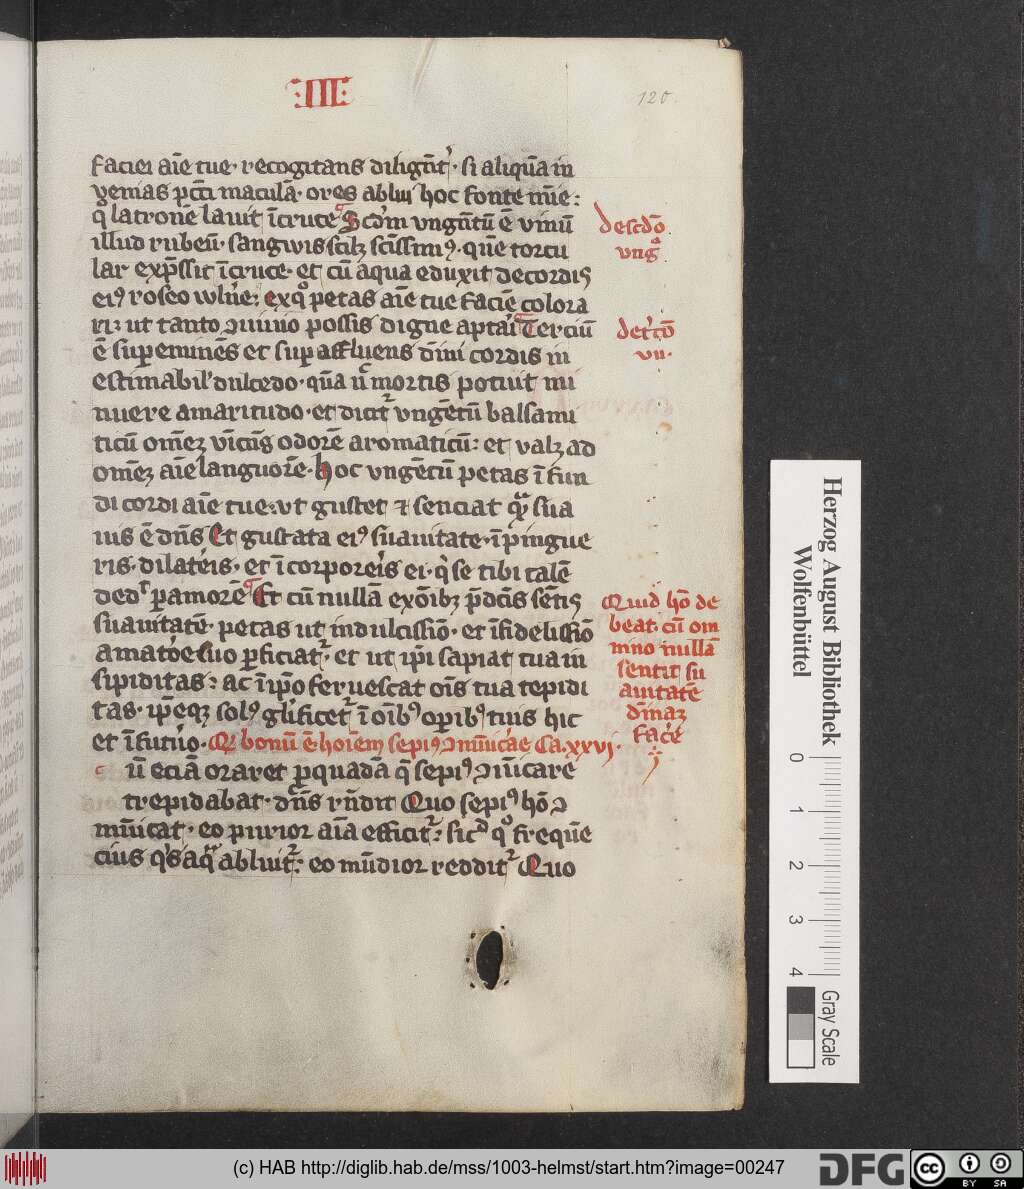 ·III·
120.
faciei aīe tue· recogitans diligēt᷑· si aliquā in
venias pccī maculā· ores ablui hoc fonte mīe:
q̄ latronē lauit īcruce Scdm vngētū ē vinū
illud rubeū· sangwis scilz scīssimꝰ· quē torcu
lar expͣssit īcruce· et cū aqua eduxit decordis
eiꝰ roseo wlnē: exqͦ petas aīe tue faciē colora
ri: ut tanto ꝯuiuio possis digne aptari Terciū
ē supeminēs et supaffluens diuini cordis in
estimabil' dulcedo· quā n̄ mortis potuit mi
nuere amaritudo· et dicit᷑ vngētū balsami
ticū omēz vīcēs odorē aromaticū: et valz ad
omēz aīe languorē· hoc vngētū petas īfun
di cordi aīe tue· ut gustet ⁊ senciat qͣ sua
uis ē dn̄s Et gustata eiꝰ suauitate· īpingue
ris· dilatēis· et īcorporēis ei· q̓ se tibi talē
ded᷑ pamorē Et cū nullā exōibz pdcīs sētis
suauitatē· petas ut indulcissīo· et īfidelissīo
amatōe suo pficiat᷑· et ut ip̄i sapiat tua in
sipiditas: ac īip̄o feruescat oīs tua tepidi
tas· ip̄eqz solꝰ glīficet᷑ ī oībꝰ opibꝰ tuis hic
et īfuturo· Qͥ bonū ē hoīem sepiꝰ ꝯmūicāe Ca.xxvj·
Cū eciā oraret pquadā q̄ sepiꝰ ꝯmūicare
trepidabat· dn̄s rn̄dit Quo sepiꝰ hō ꝯ
mūicat· eo purior aīa efficit᷑: sicᷣ qͦ frequē
cius qͥs aqͣ abluit᷑: eo mūdior reddit᷑ Quo
descdō
vngͦ
detcō
vn·
Quid hō de
beat· cū om
nino nullā
sentit su
auitatē
dīnaz
facē
Herzog August Bibliothek
Wolfenbüttel
0 1 2 3 4
Gray Scale
(c) HAB http://diglib.hab.de/mss/1003-helmst/start.htm?image=00247
DFG
cc
BY SA